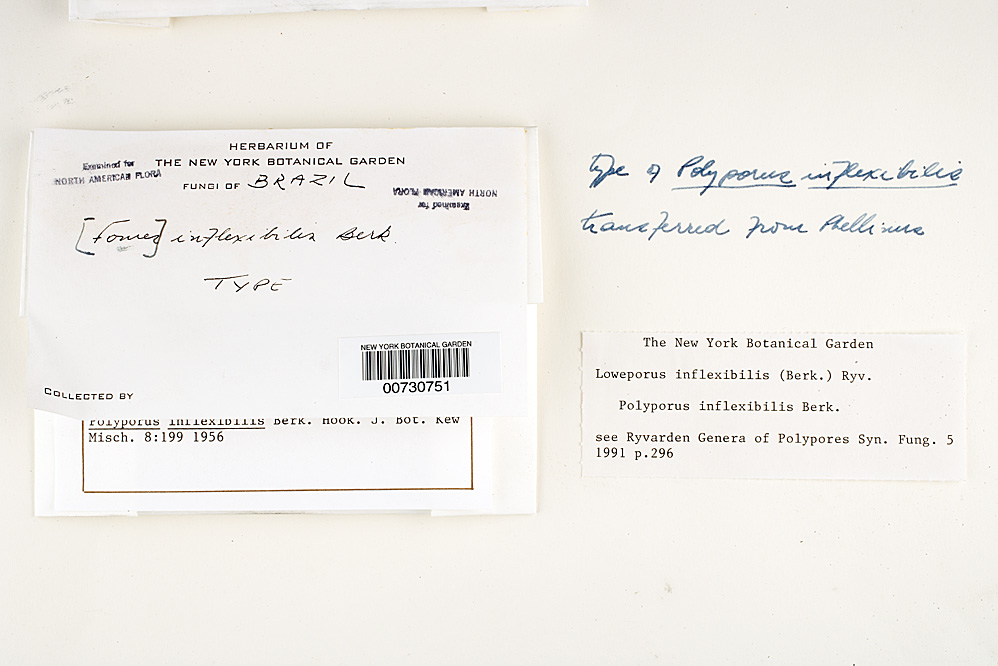 HERBARIUM OF
THE NEW YORK BOTANICAL GARDEN
Examined for
NORTH AMERICAN FLORA
FUNGI OF BRAZIL
Examined for
NORTH AMERICAN FLORA
[Fomes] inflexibilis Berk.
TYPE
NEW YORK BOTANICAL GARDEN
00730751
COLLECTED BY
Polyporus inflexibilis Berk. Hook. J. Bot. Kew
Misch. 8:199 1956
Type of Polyporus inflexibilis
transferred from Phellinus
The New York Botanical Garden
Loweporus inflexibilis (Berk.) Ryv.
Polyporus inflexibilis Berk.
see Ryvarden Genera of Polypores Syn. Fung. 5
1991 p.296